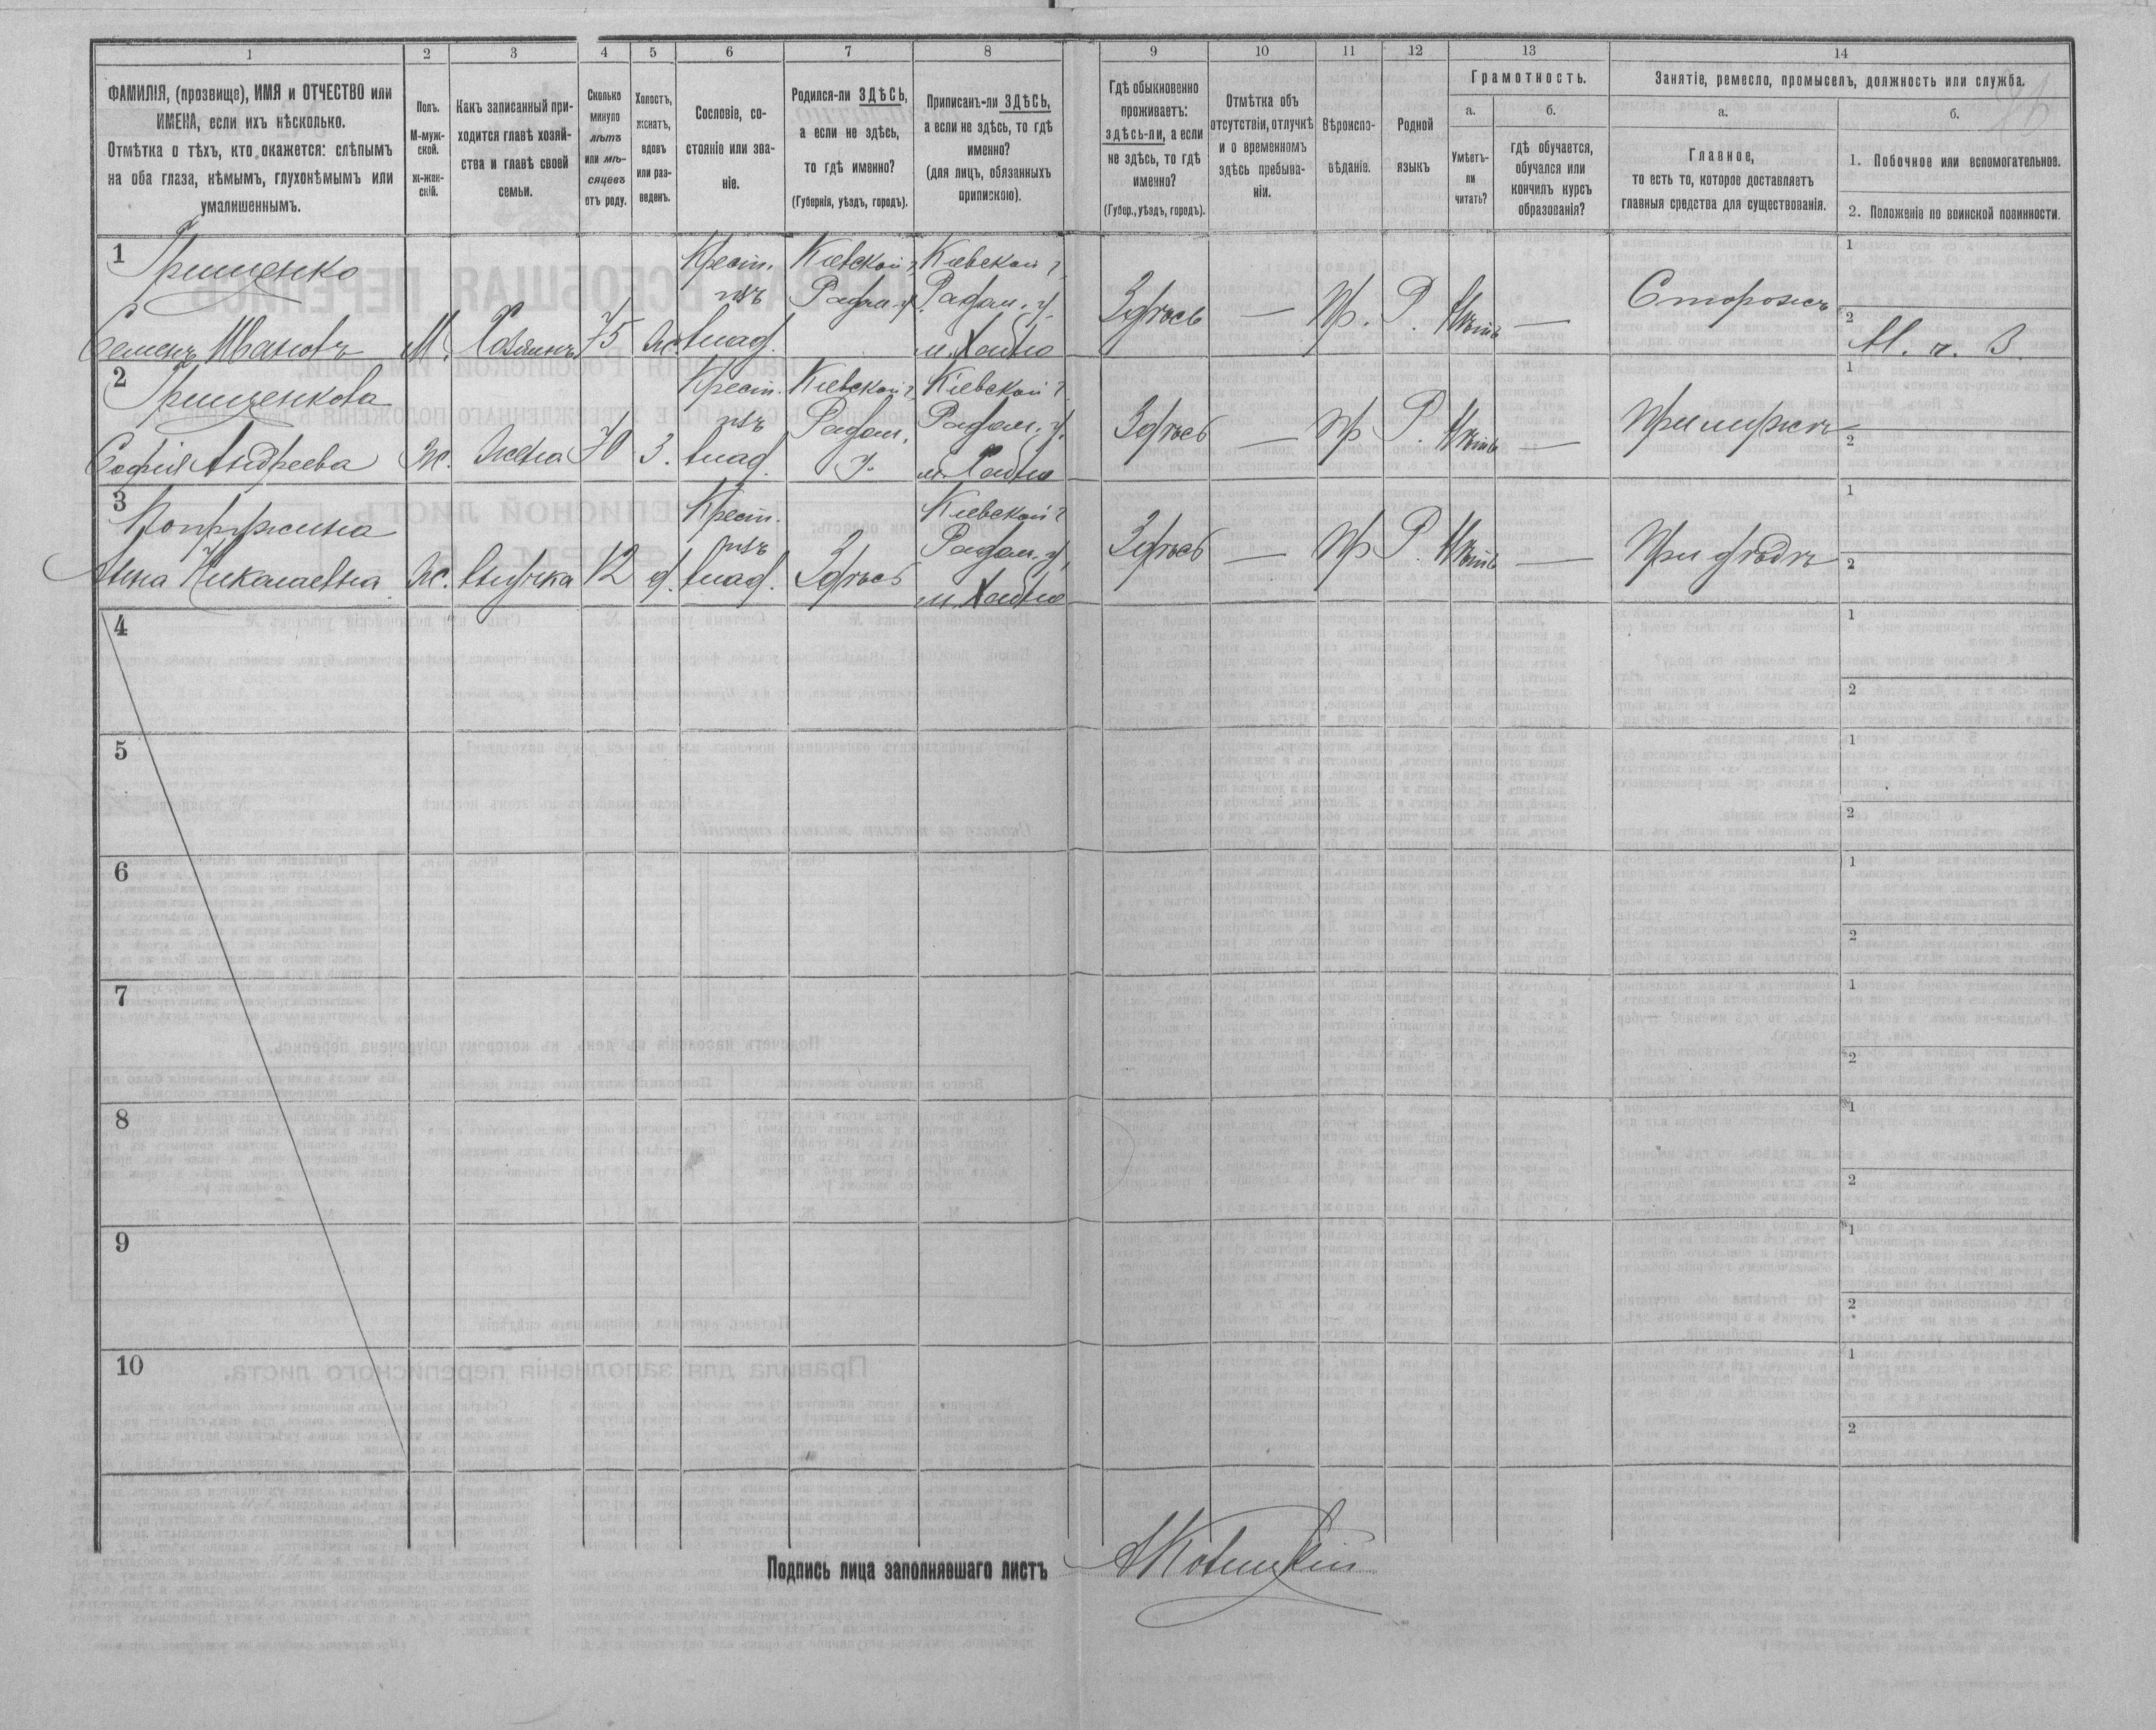 1 2 3 4 5 6 7 8 9 10 11 12 13 14
ФАМИЛІЯ, (прозвище), ИМЯ и ОТЧЕСТВО или ИМЕНА, если ихъ нѣсколько.
Отмѣтка о тѣхъ, кто окажется: слѣпымъ на оба глаза, нѣмымъ, глухонѣмымъ или умалишеннымъ.
Полъ.
М-мужской.
ж-женскій.
Какъ записанный приходится главѣ хозяйства и главѣ своей семьи.
Сколько минуло лѣтъ или мѣсяцевъ отъ роду.
Холостъ, женатъ, вдовъ или разведенъ.
Сословіе, состояніе или званіе.
Родился-ли ЗДѢСЬ, а если не здѣсь, то гдѣ именно?
(Губернія, уѣздъ, городъ).
Приписанъ-ли ЗДѢСЬ, а если не здѣсь, то гдѣ именно?
(для лицъ, обязанныхъ припискою).
Гдѣ обыкновенно проживаетъ: здѣсь-ли, а если не здѣсь, то гдѣ именно?
(Губер., уѣздъ, городъ).
Отмѣтка объ отсутствіи, отлучкѣ и о временномъ здѣсь пребываніи.
Вѣроисповѣданіе.
Родной языкъ
Грамотность.
а.
Умѣетъ-ли читать?
б.
гдѣ обучается, обучался или кончилъ курсъ образованія?
Занятіе, ремесло, промыселъ, должность или служба.
а.
Главное,
то есть то, которое доставляетъ главныя средства для существованія.
б.
1. Побочное или вспомогательное.
2. Положеніе по воинской повинности.
1 Грищенко
Семенъ Ивановъ
М. Хозяинъ 75 ж.
Крест. изъ влад.
Кіевской г. Радом. у.
Кіевской г. Радом. у. м. Хабно
Здѣсь — Пр. Р. Нѣтъ —
Сторожъ
1
2 М. г. В.
2 Грищенкова
Софія Андреева
Ж. Жена 70 З.
Крест. изъ влад.
Кіевской г. Радом. у.
Кіевской г. Радом. у. м. Хабно
Здѣсь — Пр Р. Нѣтъ —
При мужѣ
1
2
3
Анна Николаевна
Ж. внучка 12 д.
Крест. изъ влад.
Здѣсь
Кіевской г. Радом. у. м. Хабно
Здѣсь — Пр Р. Нѣтъ —
При дѣдѣ
1
2
4 1
2
5 1
2
6 1
2
7 1
2
8 1
2
9 1
2
10 1
2
Подпись лица заполнявшаго листъ